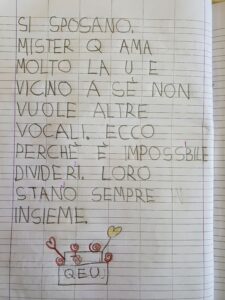 SI SPOSANO.
MISTER Q AMA
MOLTO LA U E
VICINO A SÈ NON
VUOLE ALTRE
VOCALI. ECCO
PERCHÈ È IMPOSSBILE
DIVIDERLI. LORO
STANO SEMPRE
INSIEME.
QEU